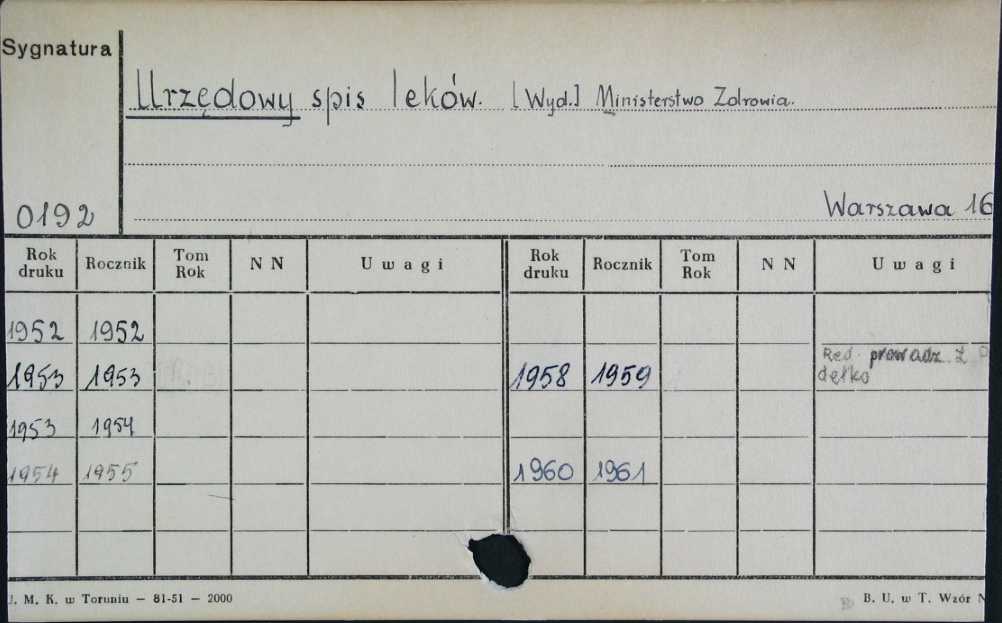 Sygnatura
Urzędowy spis leków. [Wyd.] Ministerstwo Zdrowia.
0192
Warszawa 16
Rok druku Rocznik Tom Rok N N Uwagi Rok druku Rocznik Tom Rok N N Uwagi
1952 1952
1953 1953 1958 1959 Red. prowadz. Z
dełko
1953 1954
1954 1955 1960 1961
J. M. K. w Toruniu — 81-51 — 2000 B. U. w T. Wzór N